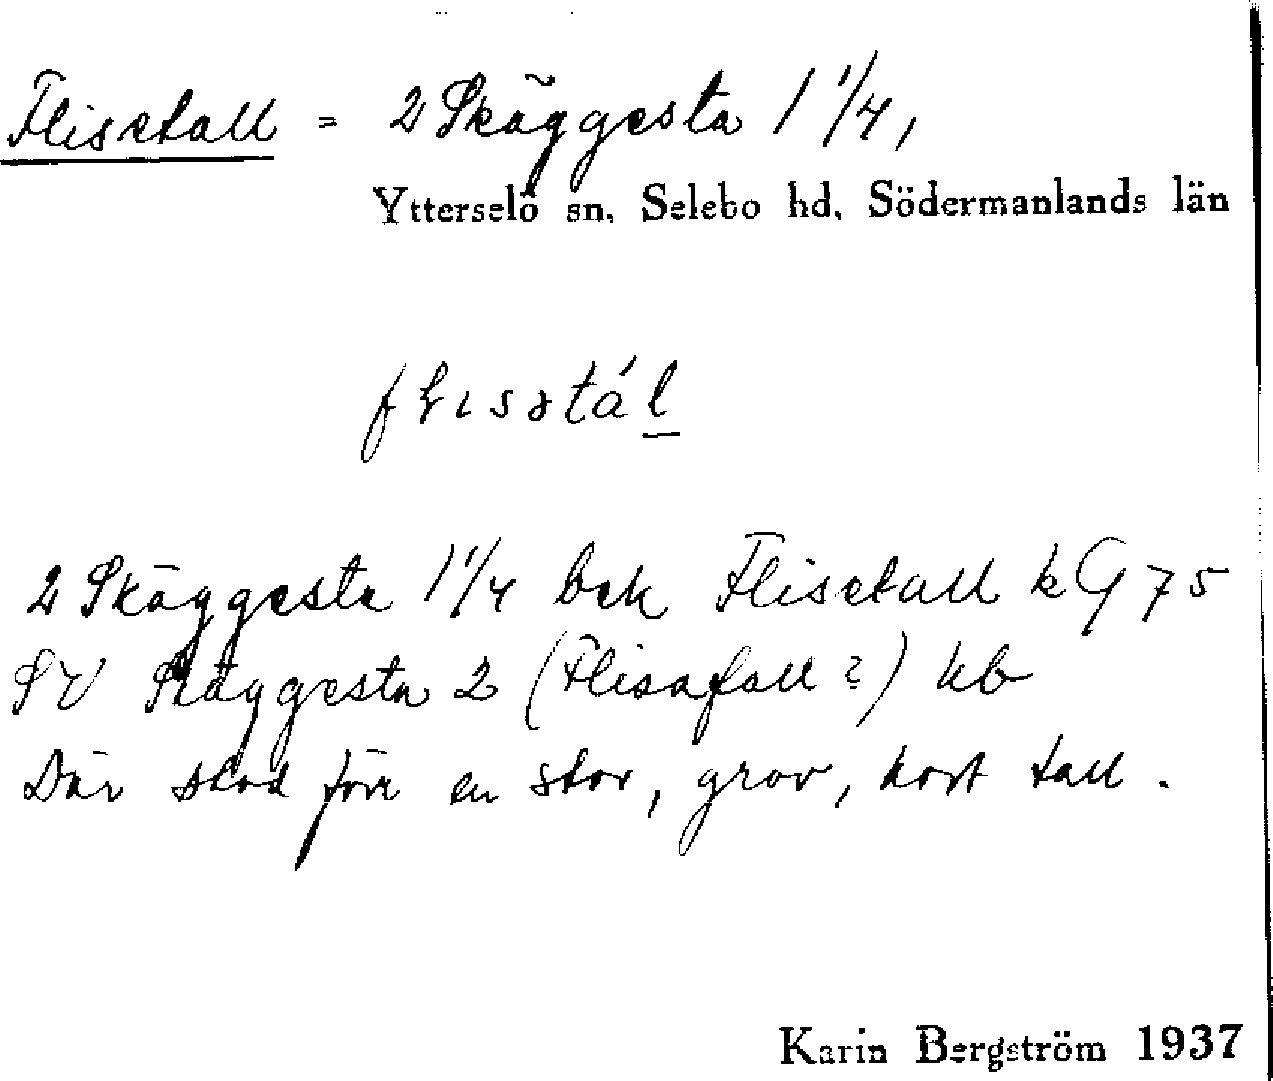 Flisetall = 2 Skäggesta 1 1/4,
Ytterselö sn, Selebo hd, Södermanlands län
2 Skäggesta 1 1/4 bek Flisetall kG 75
SV Skäggesta 2 (Flisafall?) kb
Där stod förr en stor, grov, kort tall.
Karin Bergström 1937